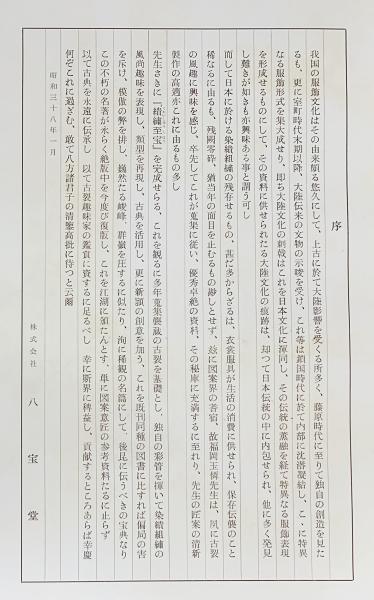 序
我国の服飾文化はその由来頗る悠久にして、上古に於て大陸影響を受くる所多く、藤原時代に至りて独自の創造を見た
るも、更に室町時代末期以降、大陸伝来の文物の示唆を受け、これ等は鎖国時代に於て内部に沈潜凝結し、こゝに特異
なる服飾形式を集大成せり、即ち大陸文化の刺戟はこれを日本文化に渾同し、その伝統の蒸融を経て特異なる服飾表現
を形成せるものにして、その資料に供せられたる大陸文化の痕跡は、却つて日本伝統の中に内包せられ、他に多く発見
し難きが如きも亦興味ある事と謂う可し
而して日本に於ける染繍組織の残存せるもの、甚だ多からざるは、衣裳服具が生活の消費に供せられ、保存伝襲のこと
稀なるに由るも、残闕零砕、猶当年の面目を止むるもの尠しとせず、玆に図案界の耆宿、故福岡玉僊先生は、夙に古裂
の風趣に興味を感じ、卒先してこれが蒐集に従い、優秀卓絶の資料、その秘庫に充満するに至れり、先生の匠案の清新
製作の高適亦これに由るもの多し
先生さきに『緕繍至宝』を完成せらる、これを観るに多年蒐集襲蔵の古裂を基礎とし、独自の彩管を揮いて染繍組織の
風尚趣味を表現し、類型を再現し、古典を活用し、更に新顕の創意を加う、これを既刊同種の図書に比すれば偏局の害
を斥け、模倣の弊を排し、巍然たる崚峰、群嶽を圧するに似たり、洵に稀観の名篇にして、後昆に伝うべきの宝典なり
この不朽の名著が永らく絶版中を今度び復版し、これを江湖に頒たんとす、単に図案意匠の参考資料たるに止らず
以て古典を永遠に伝承し　以て古裂趣味家の鑑賞に資するに足るべし　幸に斯界に稗益し、貢献するところあらば幸慶
何ぞこれに過ぎざむ、敢て八方諸君子の清鑒高批に待つと云爾
昭和三十八年一月
株式会社　八宝堂